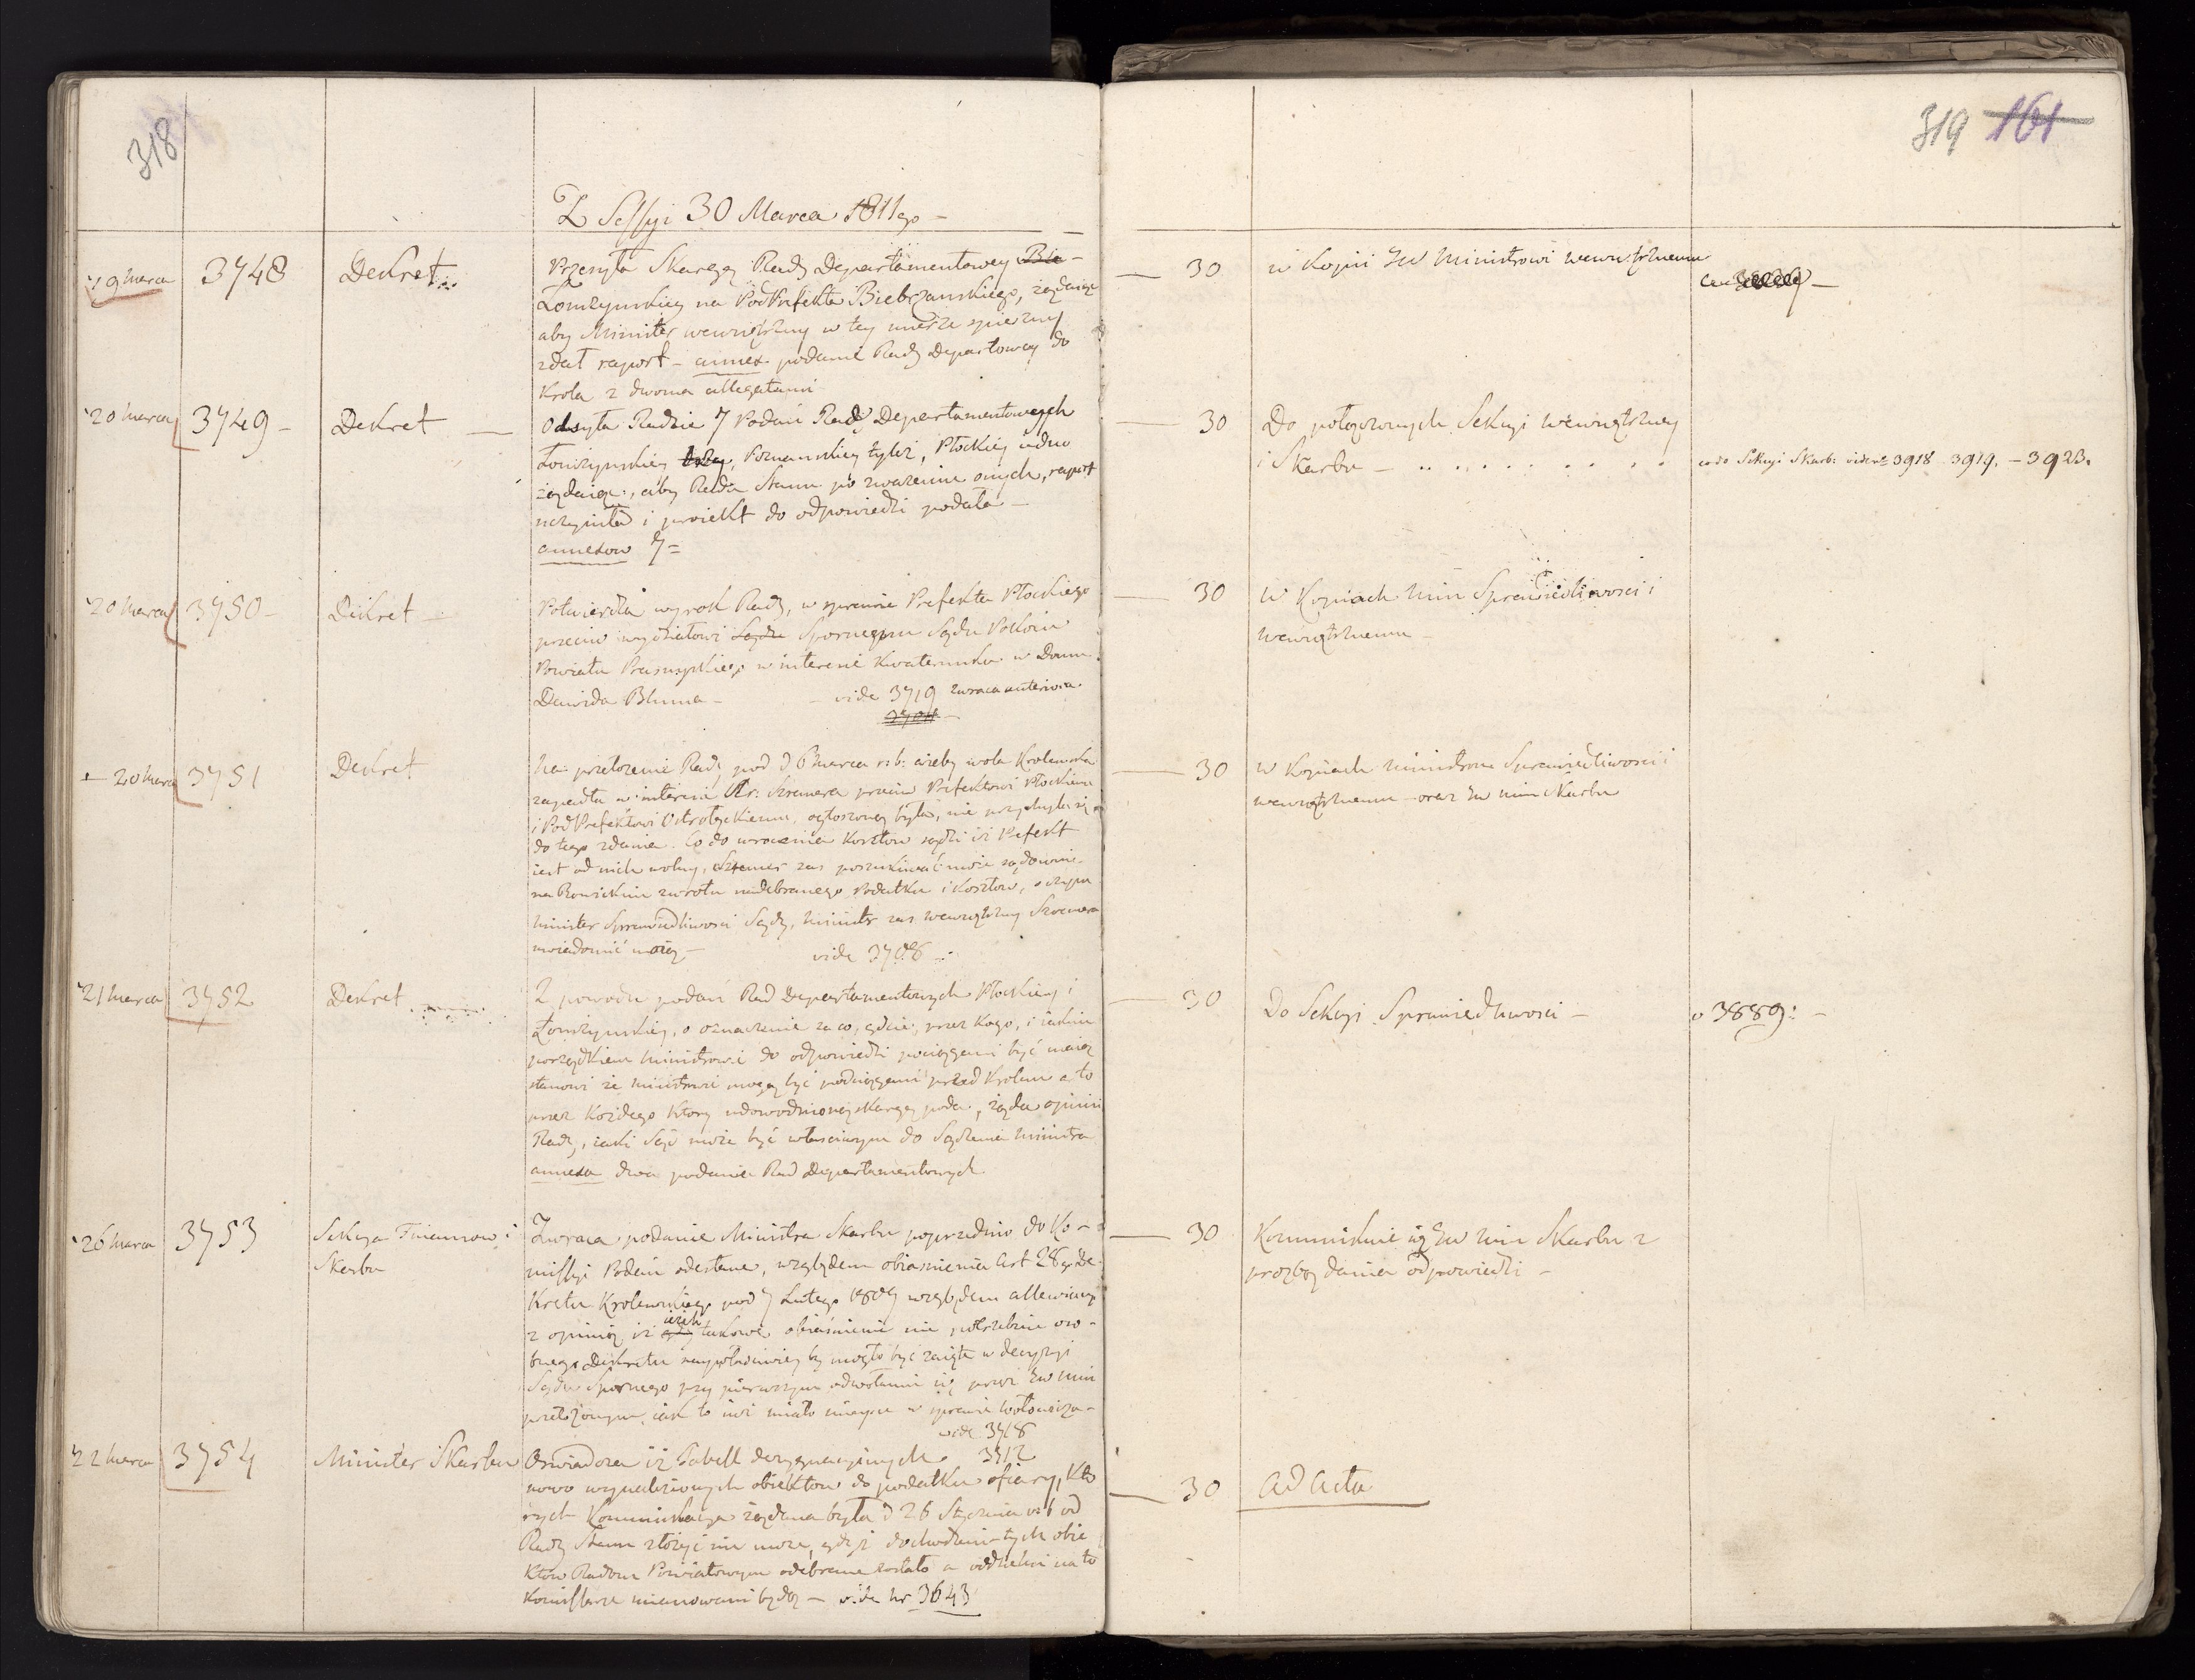 318
Z Sessyi 30 Marca 1811go –
19 Marca 3748 Dekret
Przesyła Skargę Rady Departamentowey Bie-
Łomżynskiey na PodPrefekta Biebrzanskiego, żądaiąc
aby Minister wewnętrzny w tey mierze spieszny
zdał raport – annex podanie Rady Departowey do
Krola z dwoma allegatami
20 Marca 3749 – Dekret –
Odsyła Radzie 7 Podań Rad Departamentowych
Łomżynskiey, Poznanskiey tyleż, Płockiey iedno
żądaiąc, aby Rada Stanu po zważeniu onych, raport
uczyniła i proiekt do odpowiedzi podała –
annexow 7 =
20 Marca 3750 – Dekret –
Potwierdza wyrok Rady, w sprawie Prefekta Płockiego
przeciw wydziałowi Sądu Spornego Sądu Pokoiu
Powiatu Przasnyskiego w interesie Kwaterunku w Domu
Dawida Bluma – – vide 3719 zwraca anteriora
20 Marca 3751 Dekret
Na przełożenie Rady pod d 6 Marca r: b: ażeby wola Krolewska
zapadła w interesie Sr: Szremera przeciw Prefektowi Płockiemu
i PodPrefektowi Ostrołęckiemu, ogłoszoną była, nie przychyla się
do tego zdania. Co do wrocenia Kosztow sądzi iż Prefekt
iest od nich wolny, Szremer zas poszukiwać może sądownie
na zwrotu nadebranego Podatku i Kosztow, o czym
Minister Sprawiedliwosci Sądy, Minister zas Wewnętrzny Szremera
uwiadomić maią – vide 3708 –
21 Marca 3752 Dekret
Z powodu podań Rad Departamentowych Płockiey i
Łomżynskiey, o oznaczenie za co, gdzie, przez Kogo, i iakim
porządkiem Ministrowie do odpowiedzi pociągani być maią
stanowi że Ministrowie mogą być pociągani przed Krolem a to
przez Każdego Ktory udowodnioną skargę poda, żąda opinii
Rady, iaki Sąd może być własciwym do Sądzenia Ministra
annexa dwa podania Rad Departamentowych
26 Marca 3753 Sekcya Finansow i
Skarbu
Zwraca podanie Ministra Skarbu poprzednio do Ko-
missyi Podań odesłane, względem obiasnienia Art 28go De-
kretu Krolewskiego pod 7 Lutego 1809 względem
z opinią iż iezeli takowe obiasnienie nie potrzebuie oso-
bnego Dekretu naywłasciwiey by mogło być zaięte w decyzyi
Sądu Spornego przy pierwszym odwołaniu się przez JW Min
przełożonym, iak to iuż miało mieysce w sprawie
vide 3718
3712
22 Marca 3754 Minister Skarbu
Oswiadcza iż Tabell dezygnacyinych
nowo wynalezionych obiektow do podatku ofiary, Kto-
rych Kommunikacya żądana była d 26 Stycznia r: b od
Rady Stanu złożyć nie może, gdyż dochodzenie tych obie
ktow Radom Powiatowym odebrane zostało a oddzielni na to
Kommissarze mianowani będą – vide Nr 3643
319 161
30 w Kopii JW Ministrowi wewnętrznemu
30 Do połączonych Sekcyi Wewnętrzney
i Skarbu – . . . . . . . . . co do Sekcyi Skarb: vide No 3918 3919. – 3923.
30 W Kopiach Min Sprawiedliwosci i
Wewnętrznemu –
30 W Kopiach Ministrom Sprawiedliwosci i
wewnętrznemu – oraz JW Min Skarbu
30 Do Sekcyi Sprawiedliwosci – v 3889: –
30 Kommunikuie się JW Min Skarbu z
prozbą dania odpowiedzi –
30 Ad Acta